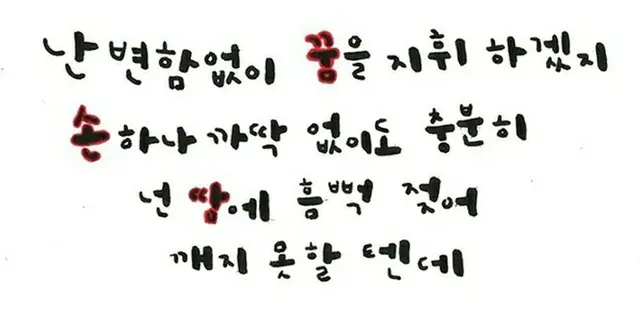 난 변함없이 꿈을 지휘 하겠지
손 하나 까딱 없이도 충분히
넌 땀에 흠뻑 젖어
깨지 못할 텐데